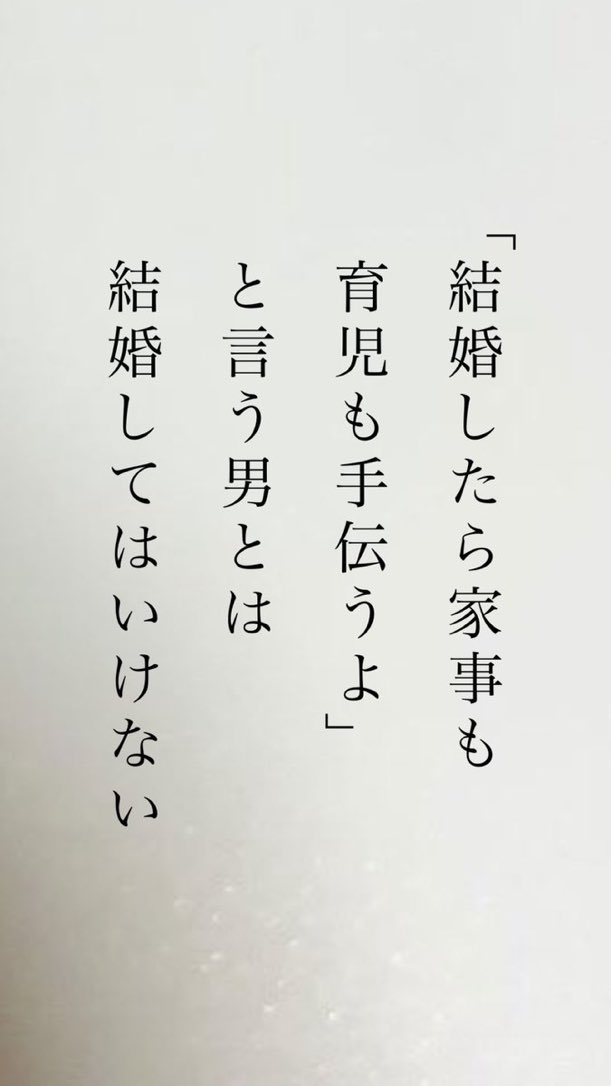 「結婚したら家事も
育児も手伝うよ」
と言う男とは
結婚してはいけない